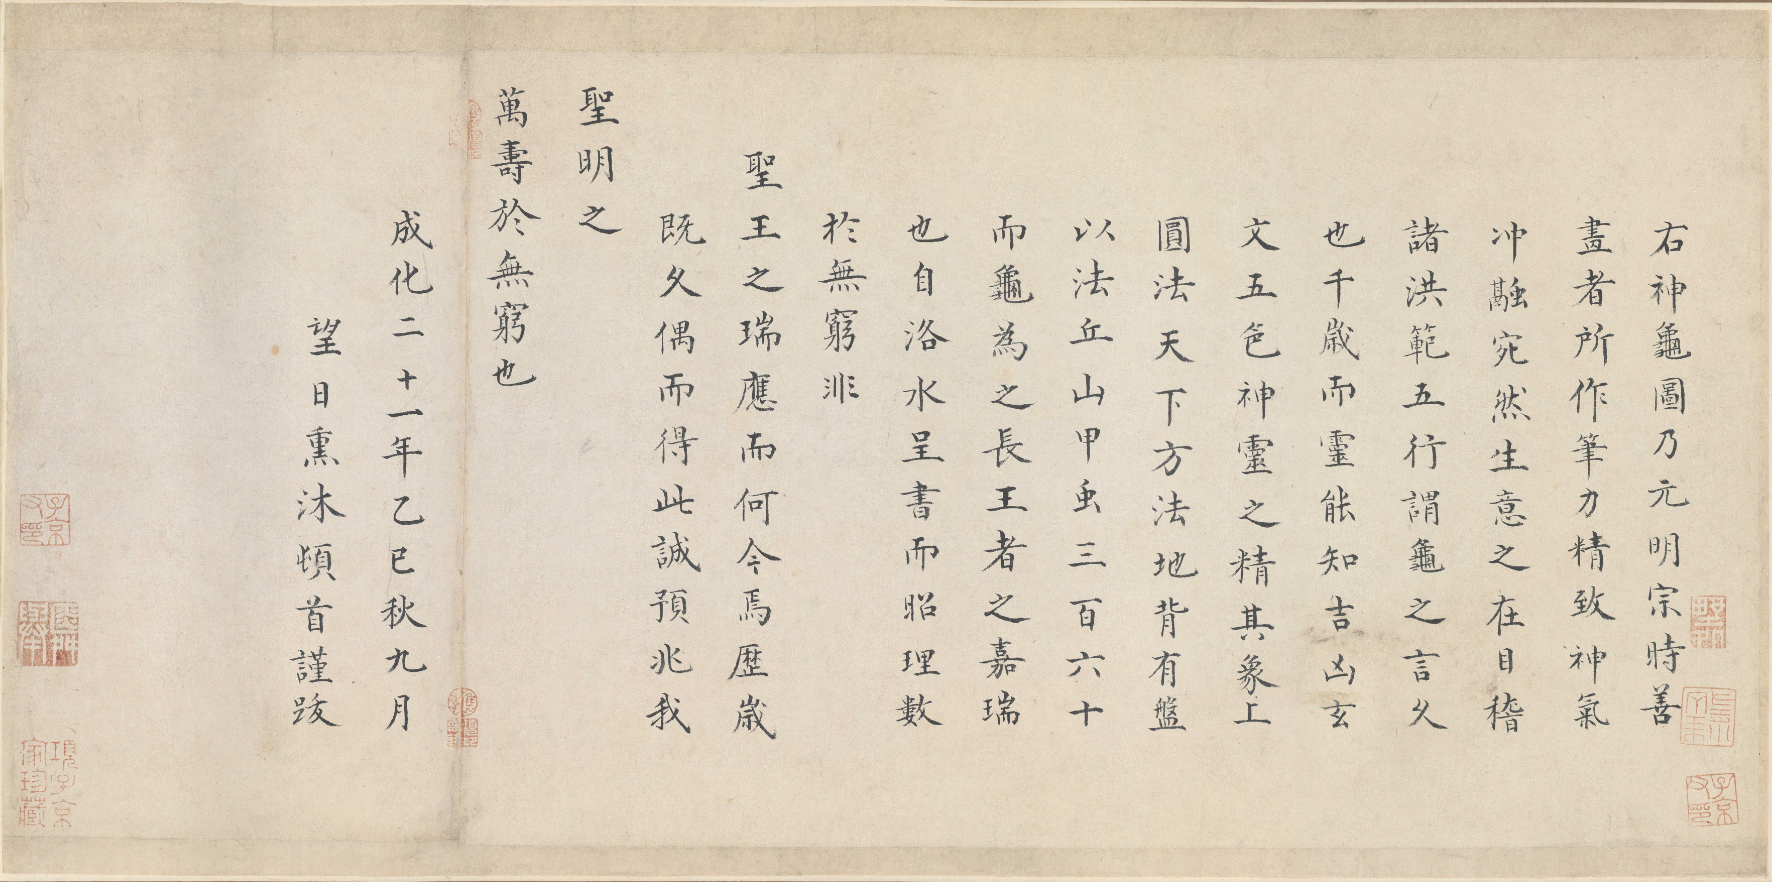 右神龜圖乃元明宗時善
畫者所作筆力精致神氣
冲融宛然生意之在目稽
諸洪範五行謂龜之言久
也千歲而靈能知吉凶玄
文五色神靈之精其象上
圓法天下方法地背有盤
以法丘山甲虫三百六十
而龜為之長王者之嘉瑞
也自洛水呈書而昭理數
於無窮非
聖王之瑞應而何今焉歷歲
既久偶而得此誠預兆我
聖明之
萬壽於無窮也
成化二十一年乙巳秋九月
望日熏沐頓首謹跋
子京父印
項子京家珍藏
子京父印